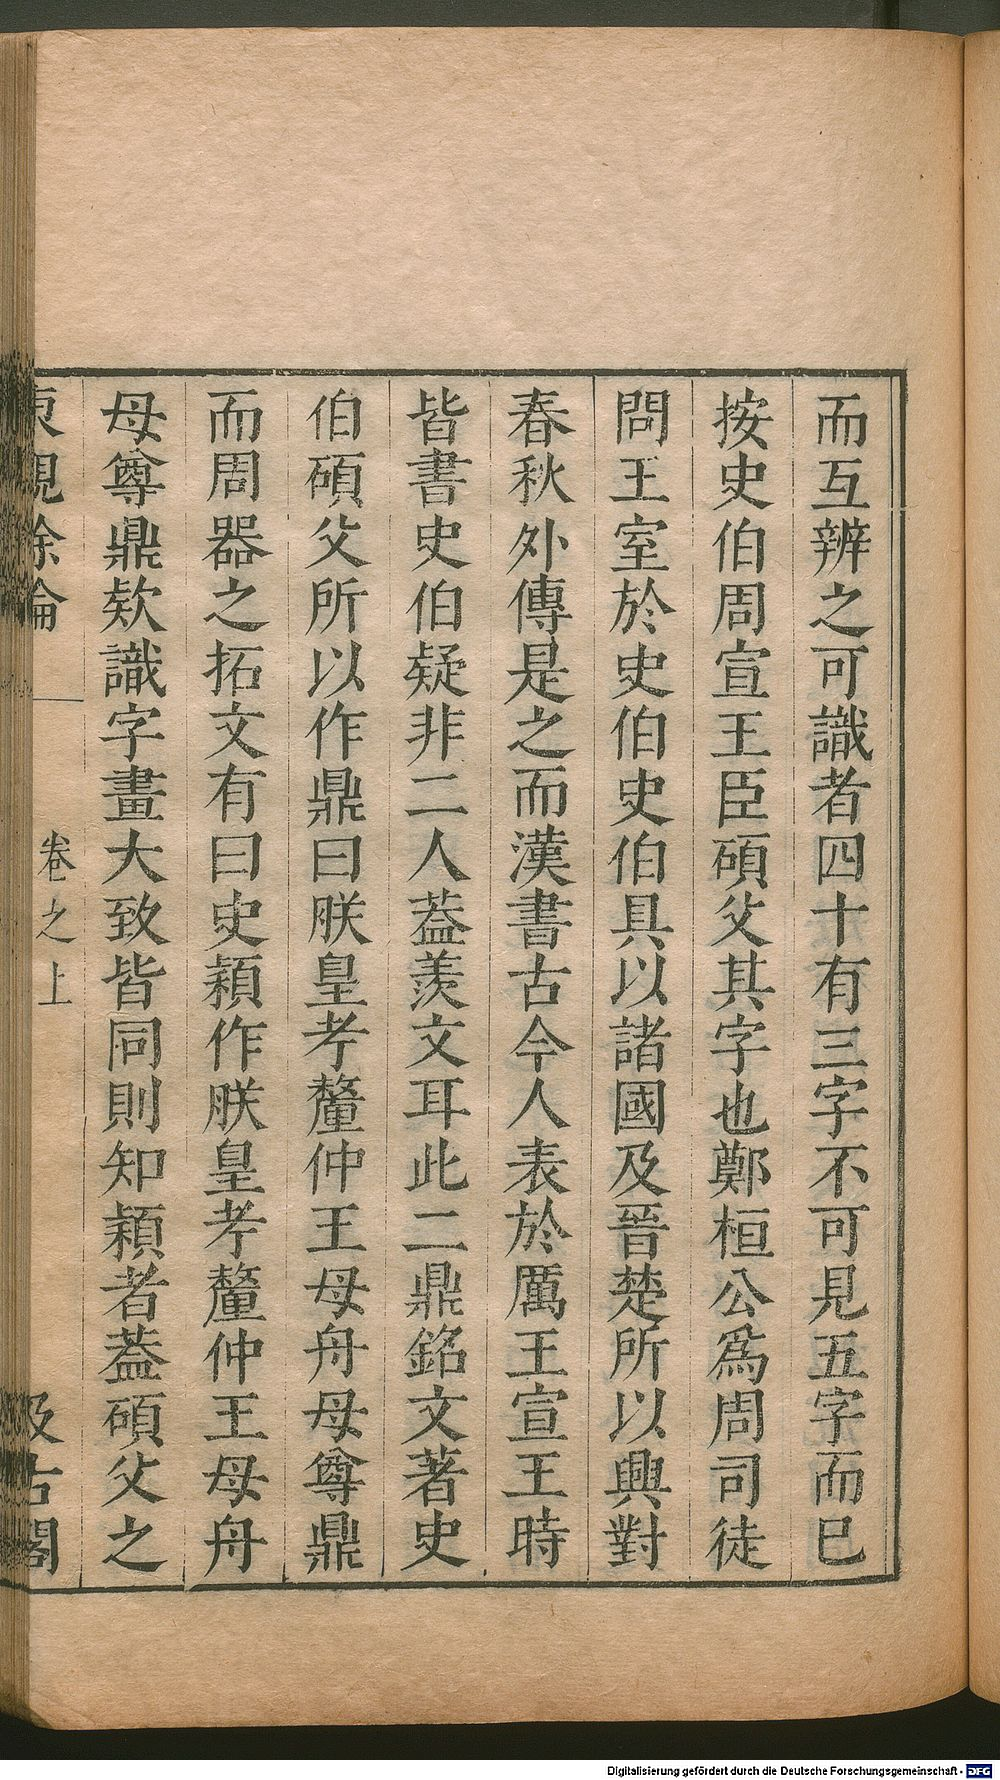 而互辨之可識者四十有三字不可見五字而已
按史伯周宣王臣碩父其字也鄭桓公爲周司徒
問王室於史伯史伯具以諸國及晉楚所以興對
春秋外傳是之而漢書古今人表於厲王宣王時
皆書史伯疑非二人葢羨文耳此二鼎銘文著史
伯碩父所以作鼎曰朕皇孝釐仲王母舟母尊鼎
而周器之拓文有曰史潁作朕皇孝釐仲王母舟
母尊鼎欵識字畫大致皆同則知潁者葢碩父之
東觀餘論 卷之上 汲古閣
Digitalisierung gefördert durch die Deutsche Forschungsgemeinschaft - DFG